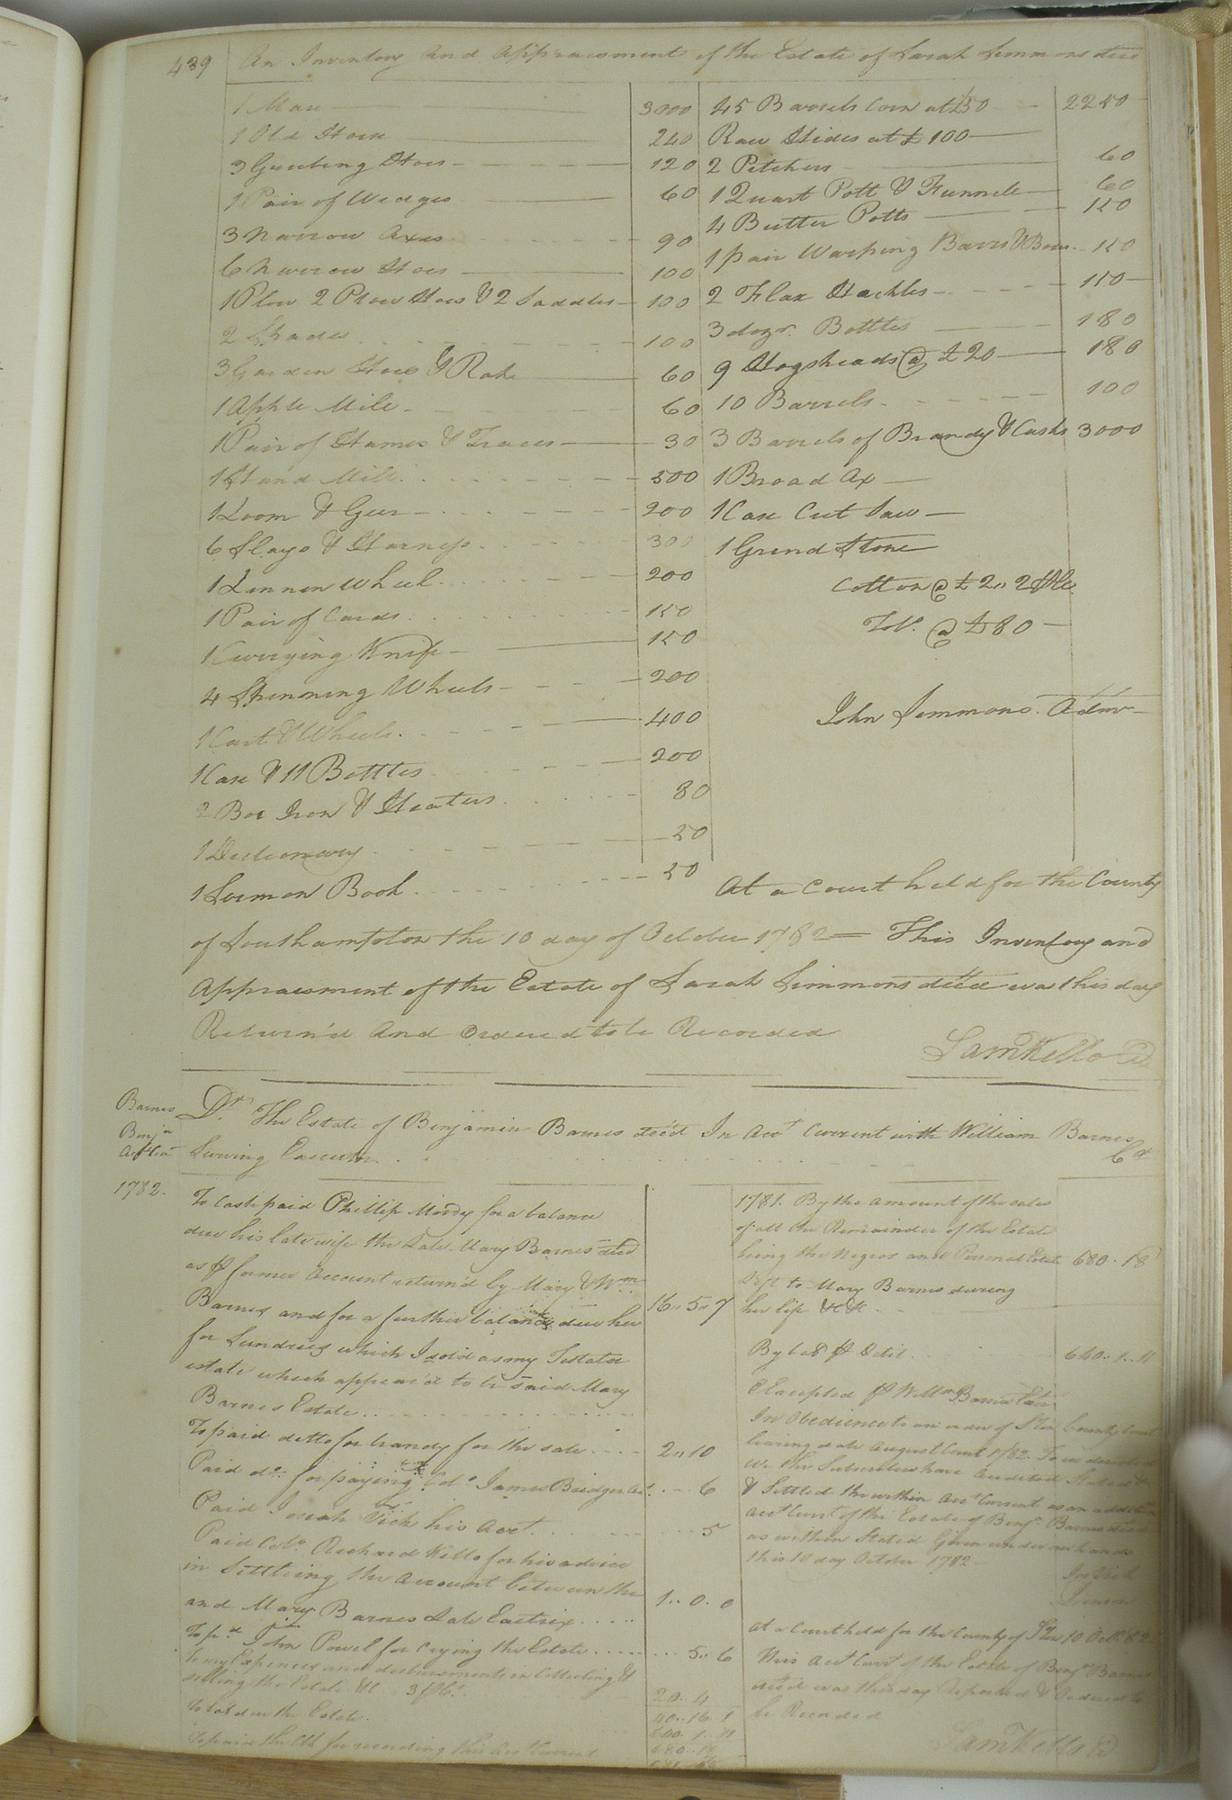 439 An Inventory and Appraisment of the Estate of Sarah Simmons decd
1 Mare 3000
1 Old Horse 240
3 Grubing Hoes 120
1 Pair of Wedges 60
3 Narrow Axes 90
6 Narrow Hoes 100
1 Plow 2 Plow Hoes & 2 Saddles 100
2 Spades 100
3 Garden Hoes & Rake 60
1 Apple Mill 60
1 Pair of Hames & Traces 30
1 Hand Mill 500
1 Loom & Gear 200
6 Slays & Harness 300
1 Linnen Wheel 200
1 Pair of Cards 150
1 Currying Knife 150
4 Spinning Wheels 200
1 Cart & Wheels 400
1 Case & 11 Bottles 200
2 Box Iron & Heaters 80
1 Dictionary 50
1 Sermon Book 50
45 Barrels Corn at £50 2250
Raw Hides at £100
2 Pitchers 60
1 Quart Pott & Funnele 60
4 Butter Potts 150
1 pair Warping Barrs & Boxes 150
2 Flax Hackles 150
3 dozn. Bottles 180
9 Hogsheads @ £20 180
10 Barrels 100
3 Barrels of Brandy & Casks 3000
1 Broad Ax
1 Cross Cut Saw
1 Grind Stone
Cotton @ £2,,2
Tob. @ £80
John Simmons Admr
At a Court held for the County
of Southampton the 10 day of October 1782 This Inventory and
Appraisment of the Estate of Sarah Simmons decd was this day
Return'd and Ordered to be Recorded
Saml Kello
Barnes
Benjn
Dr. The Estate of Benjamin Barnes decd In Acct Current with William Barnes
Surving Executor Cr
1782.
To Cash paid Phillip Moody for a balance
due his late wife the Late Mary Barnes decd
as pr former Account return'd by Mary & Wm
Barnes and for a further balance due her 16,,5,,7
for Sundries which I sold as my Testator
estate which appear'd to be said Mary
Barnes Estate
To paid ditto for brandy for the sale 2,,10
Paid do. for paying Colo James Bridger Act. 6
Paid Josiah Vick his Acct 5
Paid Colo. Richard Kello for his advice
in Settleing the Account between the
and Mary Barnes Late Exectrix 1..0.0
To pd John Powel for Crying the Estate 5..6
To my Expences and disbursments in Collecting &
selling the Estate &c 20..4
To bal due the Estate
To paid the Clk for recording this Acct Current
1781. By the amount of the sales
of all the Remainder of the Estate
being the Negroes and Personal Estate 680.18
left to Mary Barnes during
her life &c &c
By bal pr Debit 640..1..11
Excepted pr William Barnes Exr
In Obedience to an order of Court
bearing date August Court 1782. To us directed
We the Subscribers have Audited Stated
& Settled the within Acct Current as an addition
Acct Currt of the Estate of Benjn Barnes decd
as within Stated Given under our hands
this 10 day October 1782
At a Court held for the County of 10 Oct. 82
This Acct Currt of the Estate of Benjn Barnes
decd was this day Reported & Ordered to
be Recorded
Saml Kello